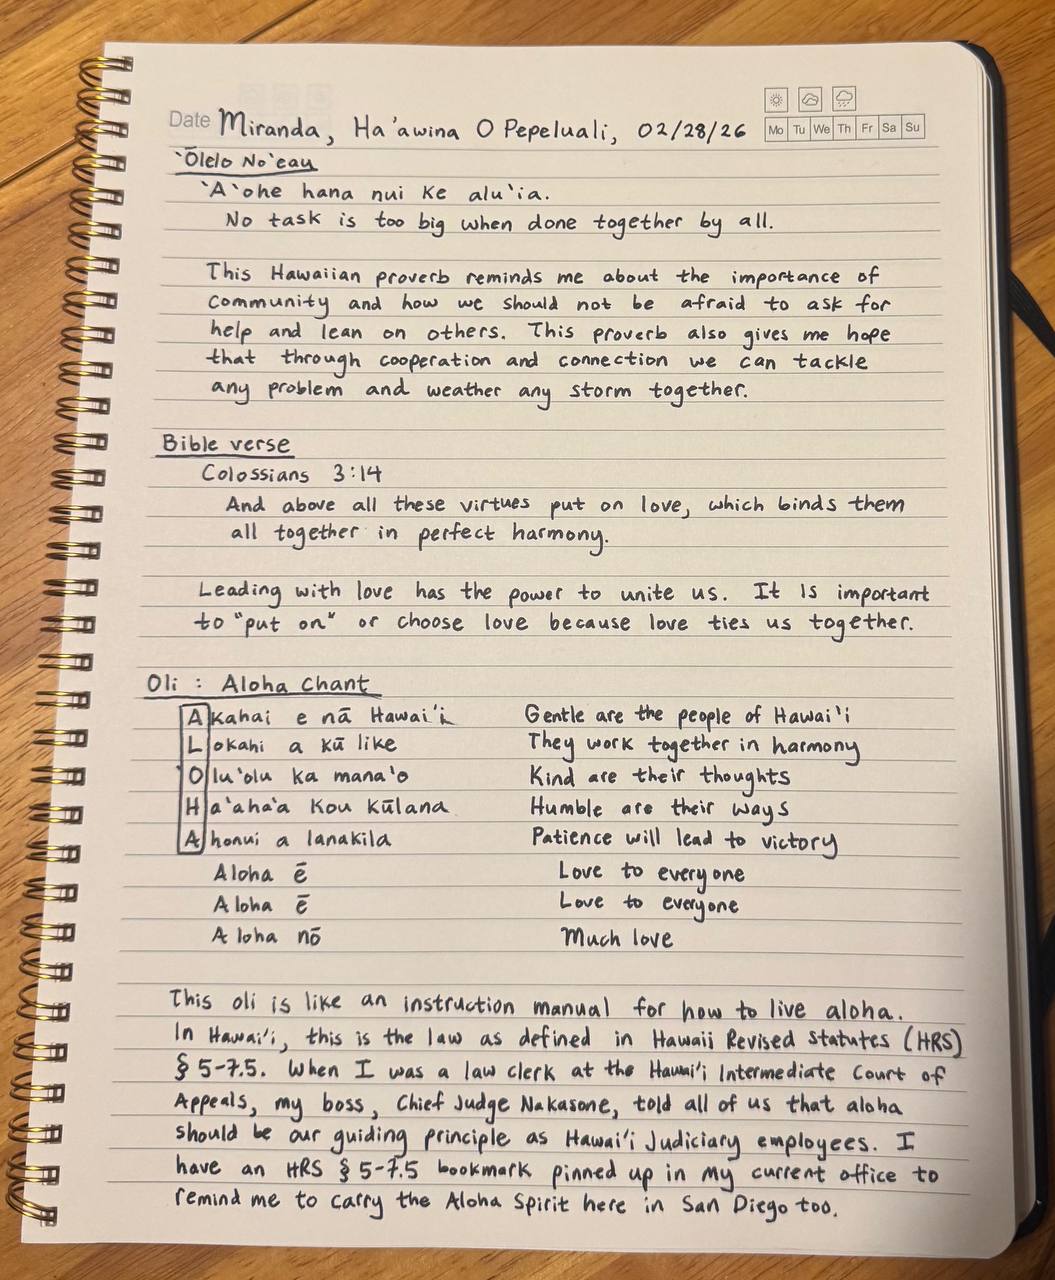 Date Miranda, Ha'awina O Pepeluali, 02/28/26
Mo Tu We Th Fr Sa Su
'Ōlelo No'eau
'A'ohe hana nui ke alu'ia.
No task is too big when done together by all.
This Hawaiian proverb reminds me about the importance of
community and how we should not be afraid to ask for
help and lean on others. This proverb also gives me hope
that through cooperation and connection we can tackle
any problem and weather any storm together.
Bible verse
Colossians 3:14
And above all these virtues put on love, which binds them
all together in perfect harmony.
Leading with love has the power to unite us. It is important
to "put on" or choose love because love ties us together.
Oli : Aloha Chant
Akahai e nā Hawai'i Gentle are the people of Hawai'i
Lokahi a kū like They work together in harmony
Olu'olu ka mana'o Kind are their thoughts
Ha'aha'a kou kūlana Humble are their ways
Ahonui a lanakila Patience will lead to victory
Aloha ē Love to everyone
Aloha ē Love to everyone
Aloha nō Much love
This oli is like an instruction manual for how to live aloha.
In Hawai'i, this is the law as defined in Hawaii Revised Statutes (HRS)
§ 5-7.5. When I was a law clerk at the Hawai'i Intermediate Court of
Appeals, my boss, Chief Judge Nakasone, told all of us that aloha
should be our guiding principle as Hawai'i Judiciary employees. I
have an HRS § 5-7.5 bookmark pinned up in my current office to
remind me to carry the Aloha Spirit here in San Diego too.